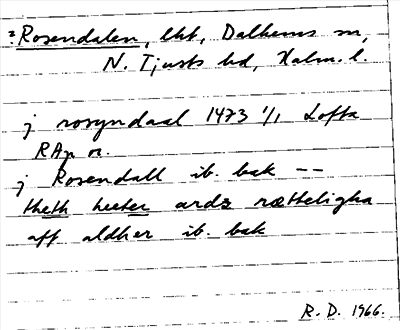 ?Rosendalen, lht, Dalhems sn,
N. Tjusts hd, Kalm. l.
j rosyndaal 1473 1/1 Lofta
RAp or.
j Rosendall ib. bak --
theth heeter ards rætteligha
aff aldher ib. bak
R. D. 1966.